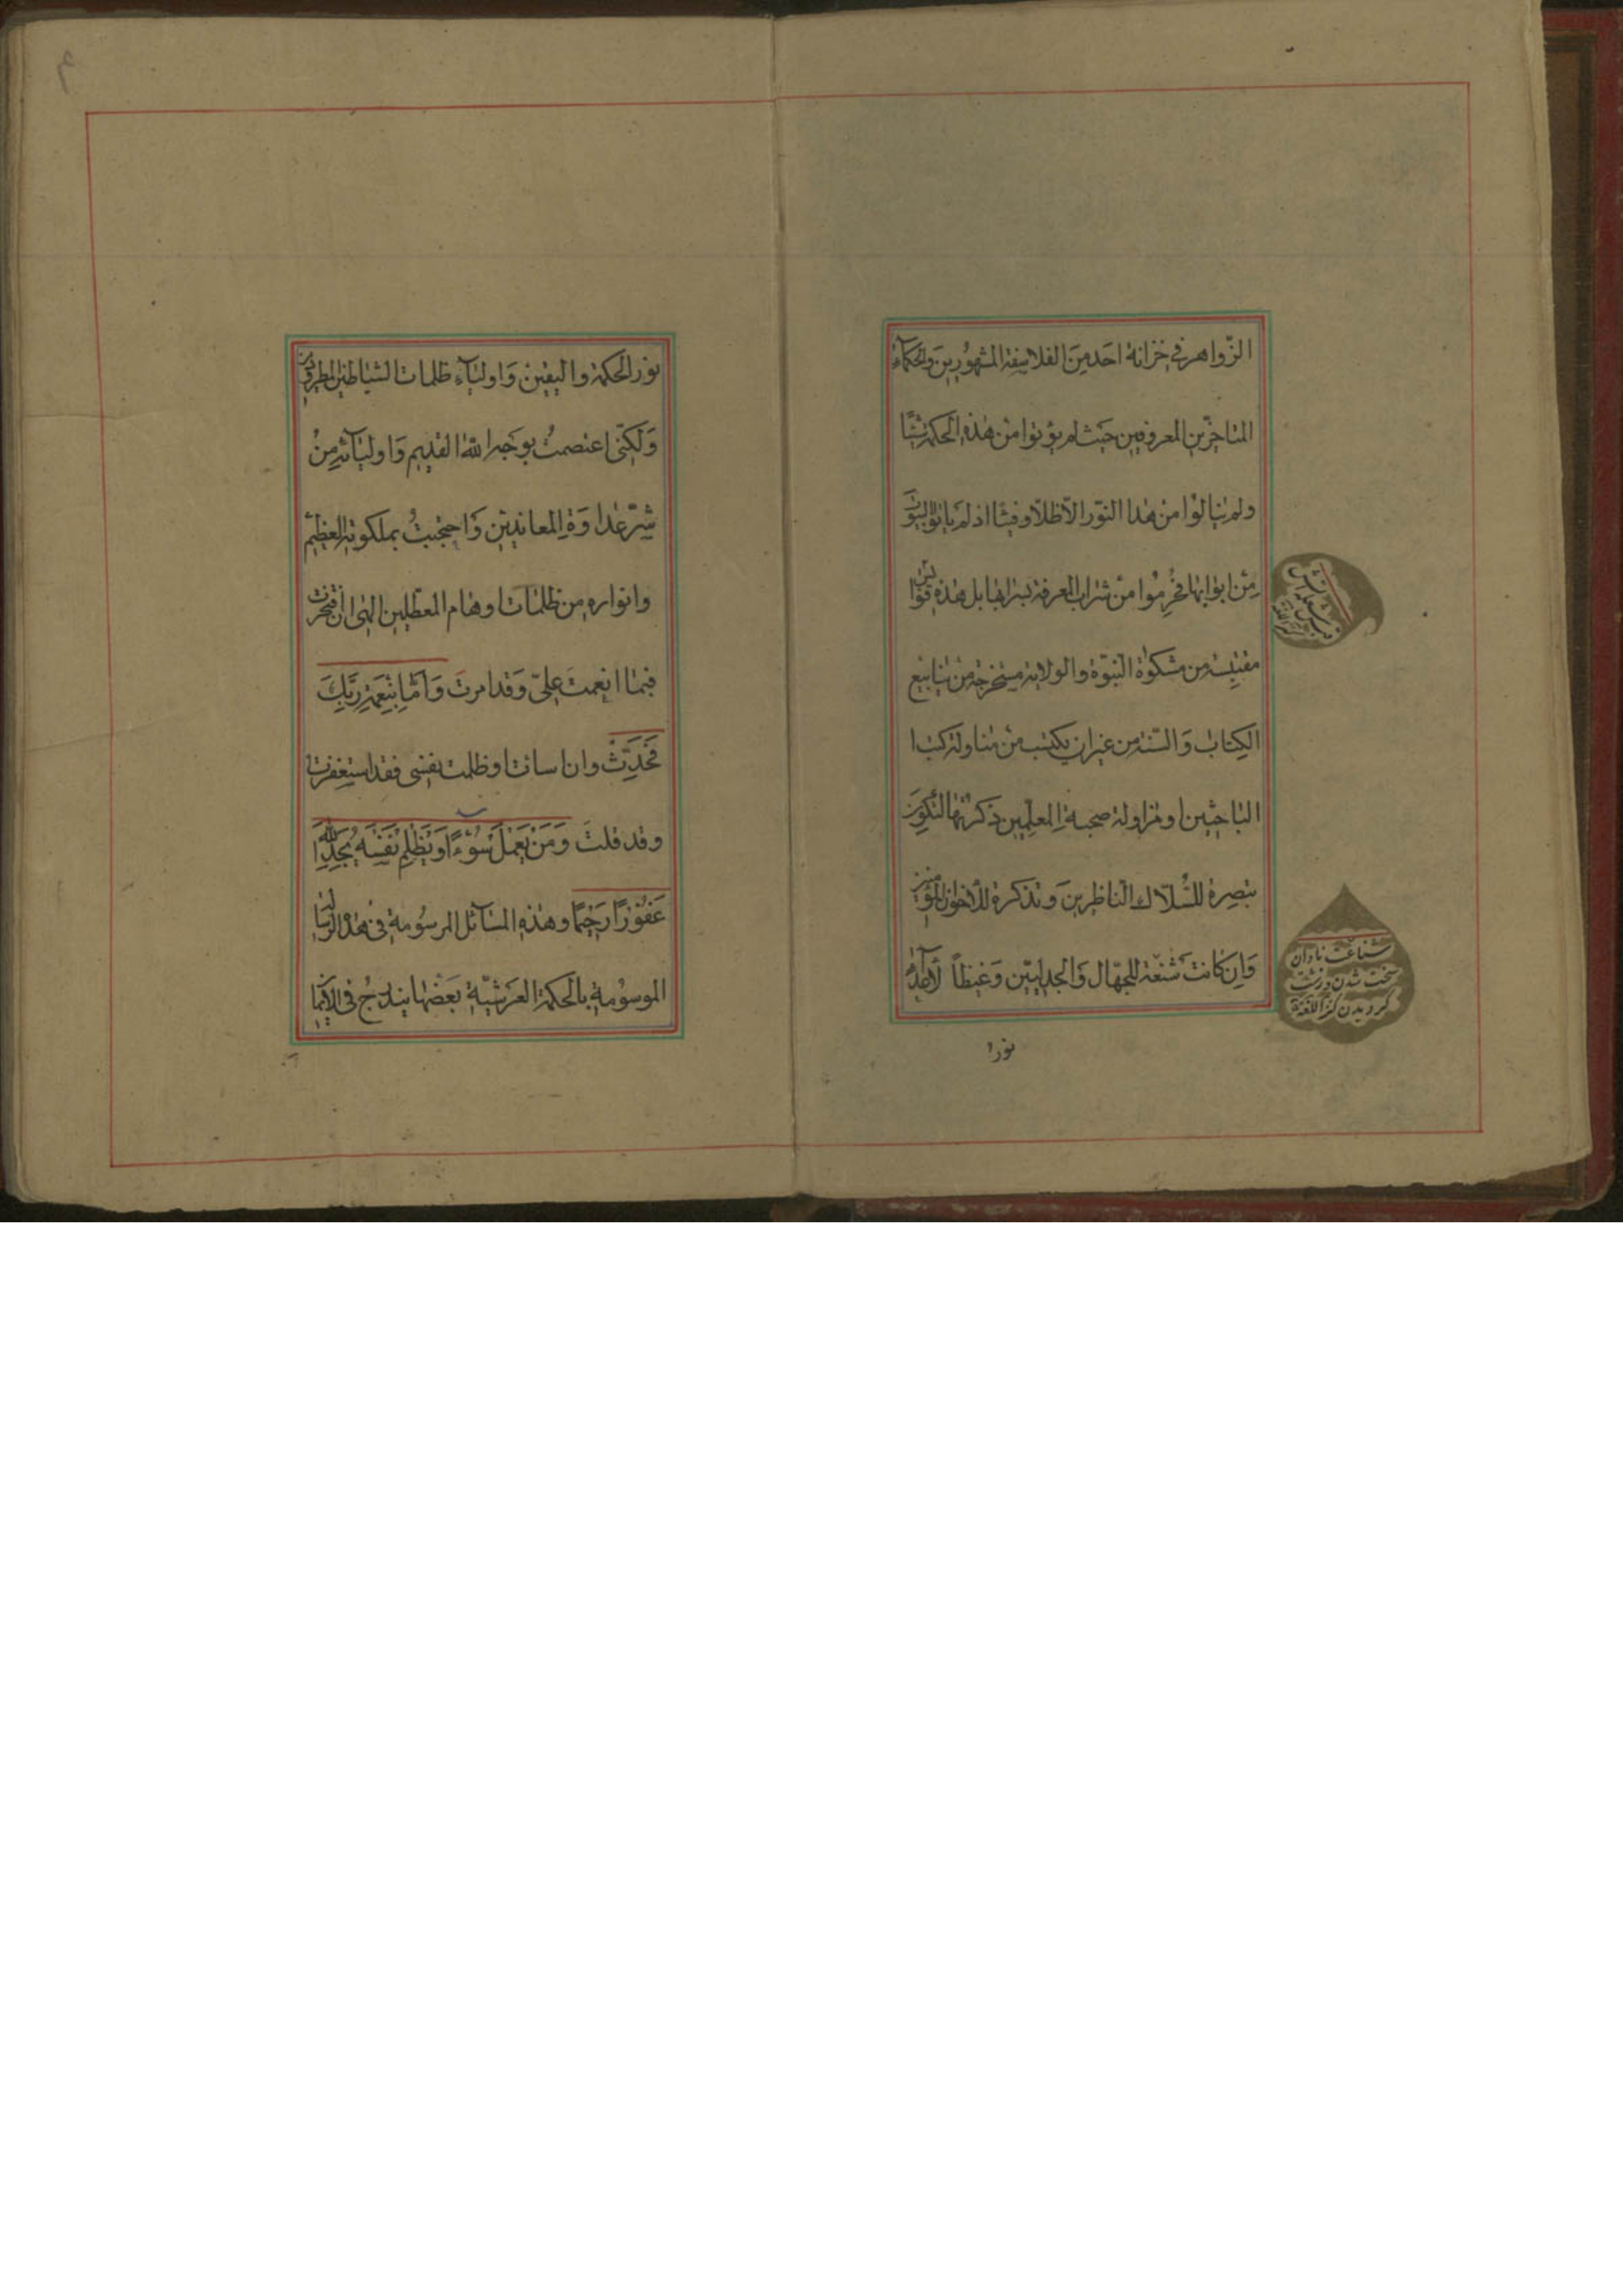 الزّواهر في خزانة احد من الفلاسفة المشهورين والحكمآء
المتاخّرين المعروفين حيث لم يؤتوا من هذه الحكمة شيئا
ولم ينالوا من هذا النّور الّا ظلّا وفيئا اذ لم ياتوا البيوت
من ابوابها فحُرِموا من شراب المعرفة بسرابها بل هذه قوابس
مقتبسة من مشكوة النّبوّة والولاية مستخرجة من ينابيع
الكتاب والسّنّة من غير ان يكتسب من مناولة كتب ا
الباحثين او مزاولة صحبة المعلّمين ذكرتها لتكون
تبصرة للسُّلّاك النّاظرين وتذكرة للأخوان المؤمنين
وَاِن كانت شنعة للجهّال وَالجدليّين وَغيظاً لأعدآء
شناعت نادان
سخت شدن و زشت
كرديدن كنز اللّغة
نورا
نور الحكمة واليقين وَاوليآء ظلمات الشياطين المطرودين
وَلكنّى اعتصمتُ بوَجه اللّه القديم وَاوليآئه مِنْ
شرّ عداوَة المعاندين وَاحتجبتُ بملكوته العظيم
وانواره من ظلمات اوهام المعطّلين الهى ان افتخرت
فبما انعمتَ علىّ وَقد امرتَ وَاَمّا بِنِعمَةِ رَبِّكَ
فَحَدِّثْ وان اسات او ظلمت نفسى فقد استغفرت
وقد قلتَ وَمَنْ يَعْمَلْ سُوْءًا اَوْ يَظْلِمْ نَفْسَهُ ثُمَّ يَسْتَغْفِرِ اللّهَ يَجِدِ اللّهَ
غَفُوْرًا رَحيمًا وهذه المسآئل المرسُومة فى هذه الرسالة
الموسوُمة بالحكمة العَرشيّة بعَضها يندرجُ فى الايما